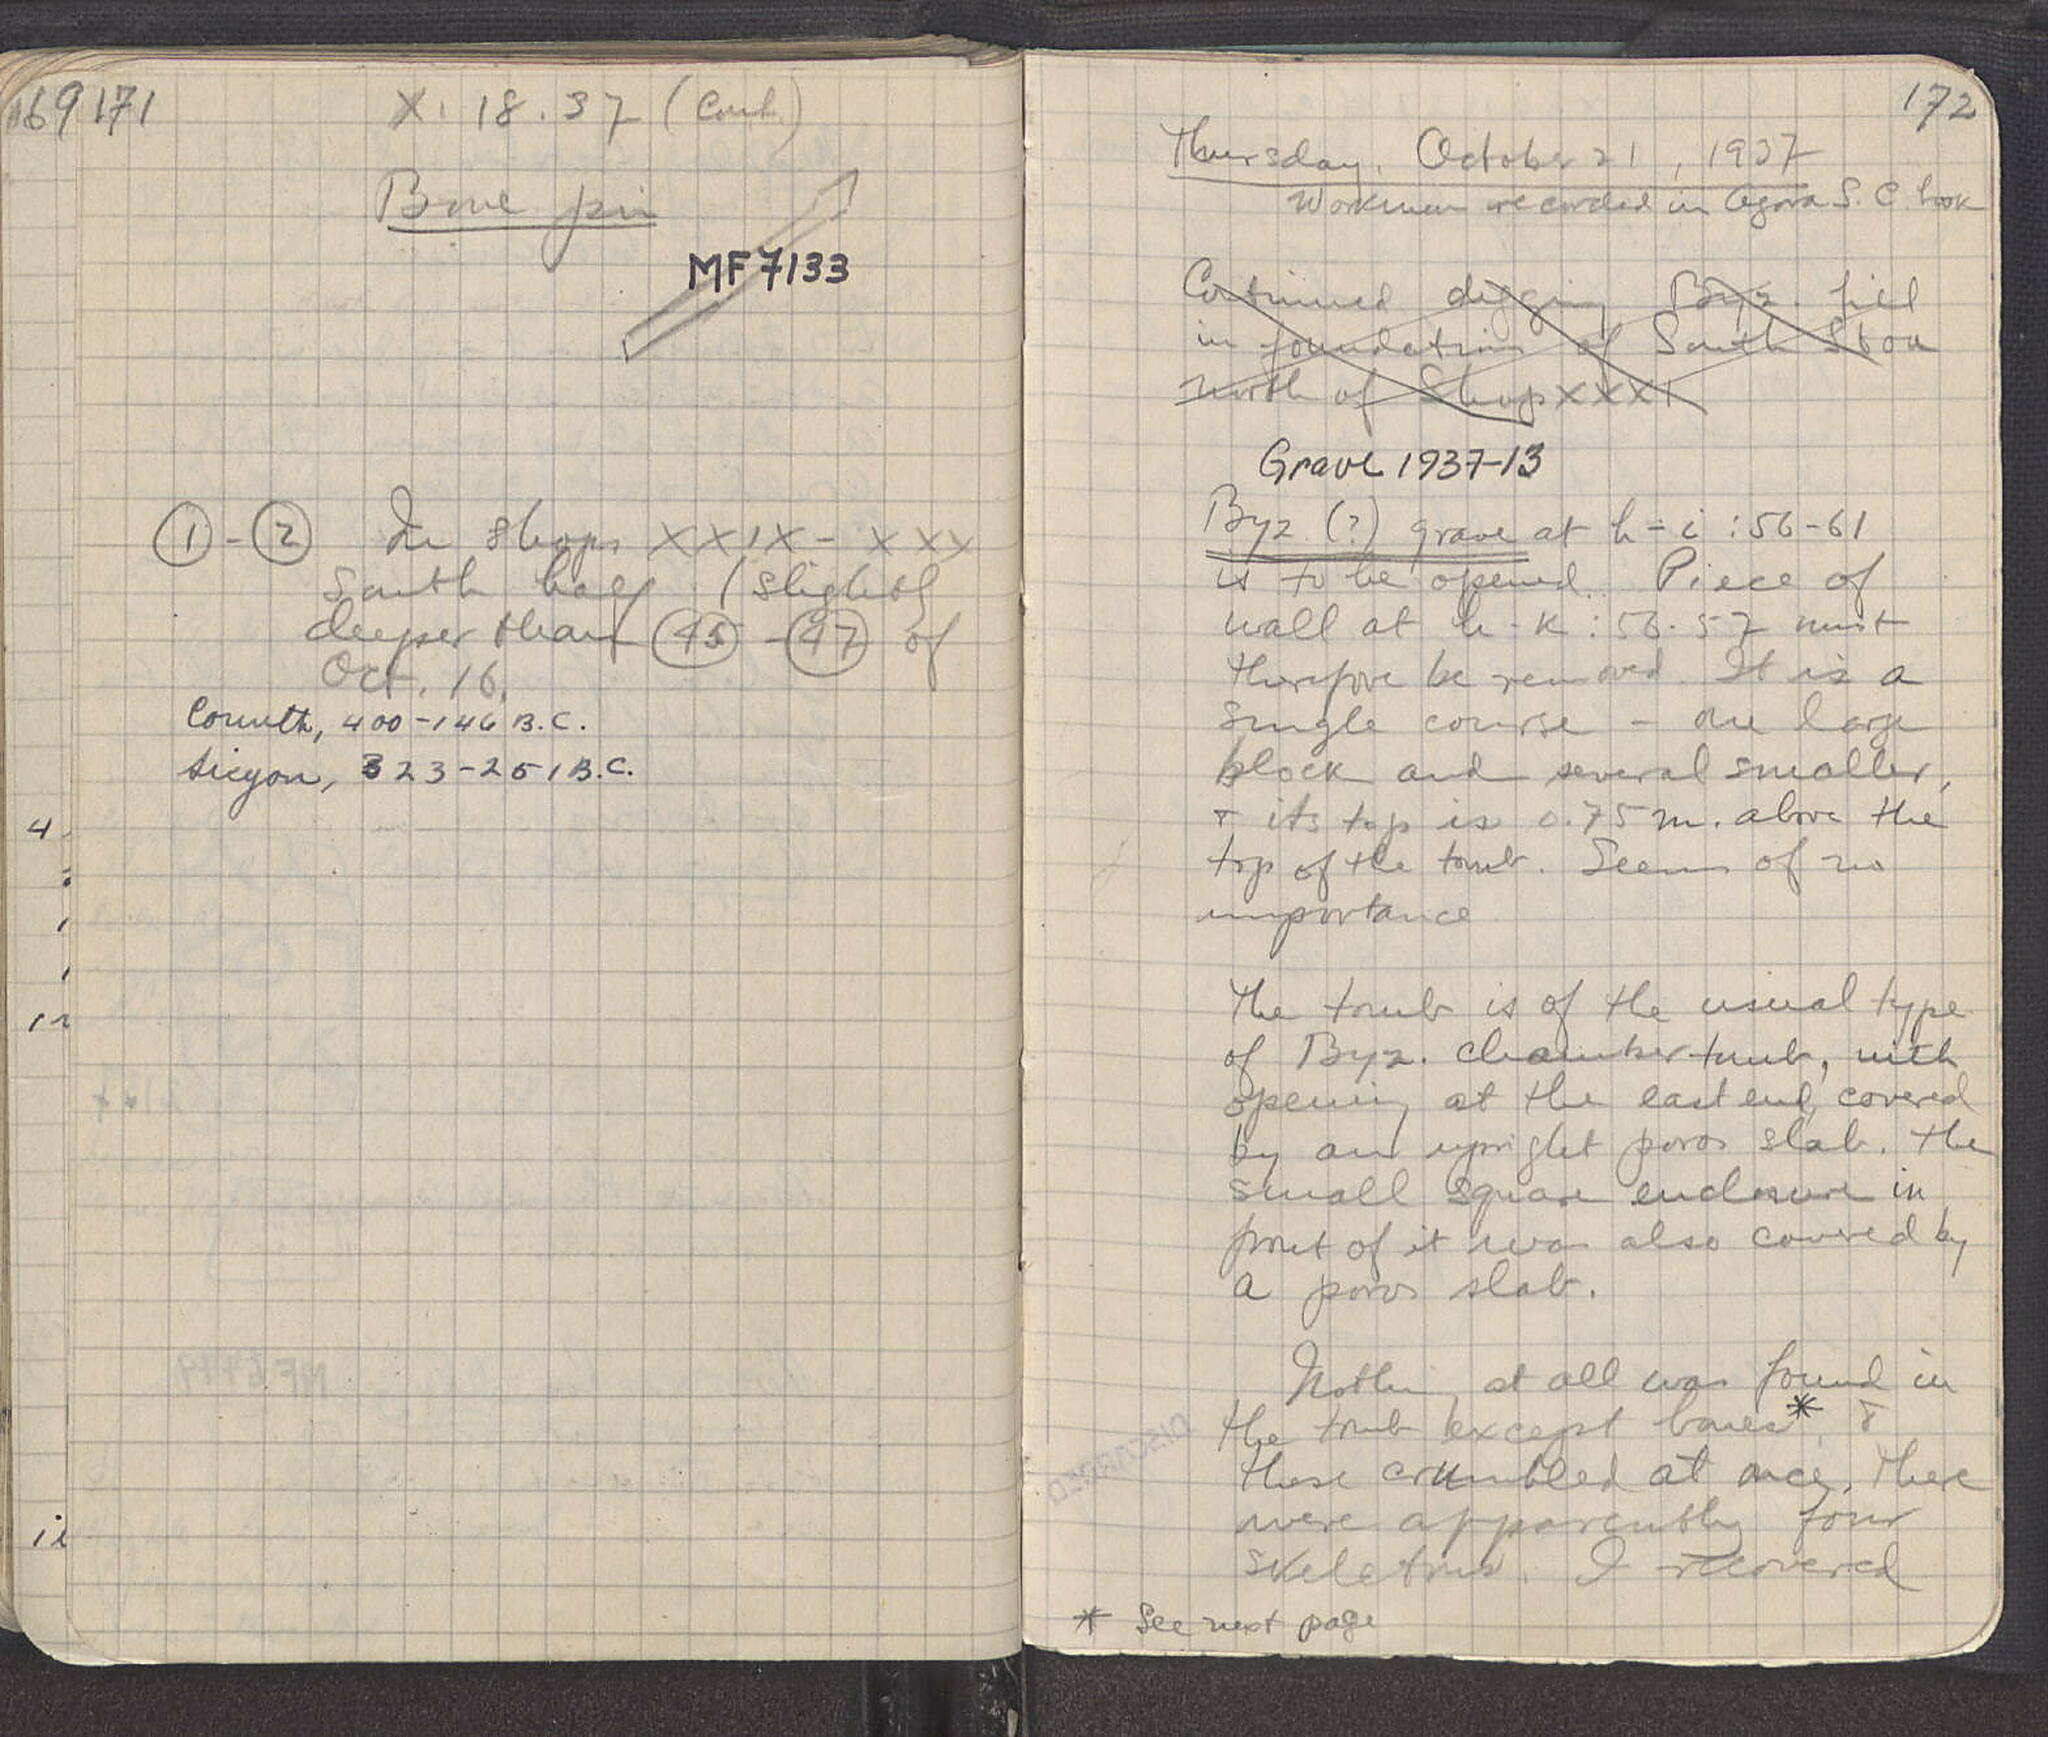 169 171
X. 18. 37 (Cont.)
Bone pin
MF 7133
1 - 2 In Shops XXIX - XXX
South half. (Slightly
deeper than 45 - 47 of
Oct. 16.
Corinth, 400-146 B.C.
Sicyon, 323-251 B.C.
172
Thursday, October 21, 1937
Workmen recorded in Agora S.C. book
Continued digging Byz. fill
in foundations of South Stoa
north of Shop XXXI
Grave 1937-13
Byz (?) grave at h-i : 56-61
is to be opened. Piece of
wall at h-k : 56-57 must
therefore be removed. It is a
single course - one large
block and several smaller,
+ its top is 0.75 m. above the
top of the tomb. Seems of no
importance
The tomb is of the usual type
of Byz. chamber tomb, with
opening at the east end, covered
by an upright poros slab. The
small square enclosure in
front of it was also covered by
a poros slab.
Nothing at all was found in
the tomb except bones*, &
these crumbled at once. There
were apparently four
skeletons. I recovered
* See next page